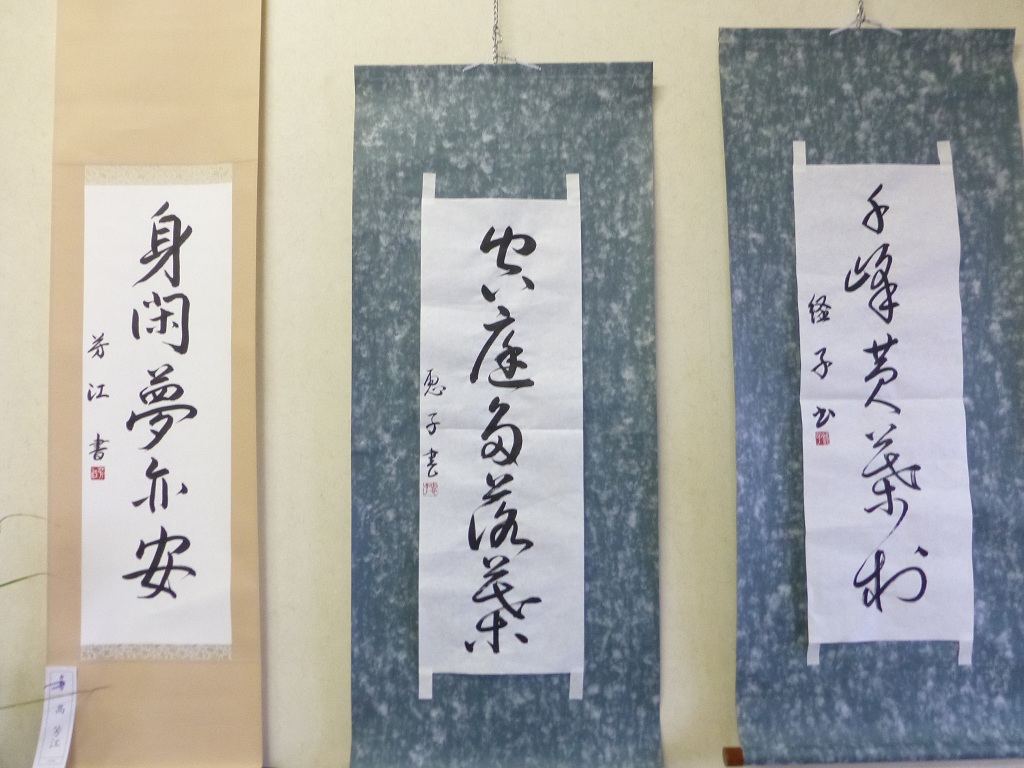 千峰黄葉村
経子書
空庭多落葉
恵子書
身閑夢亦安
芳江書